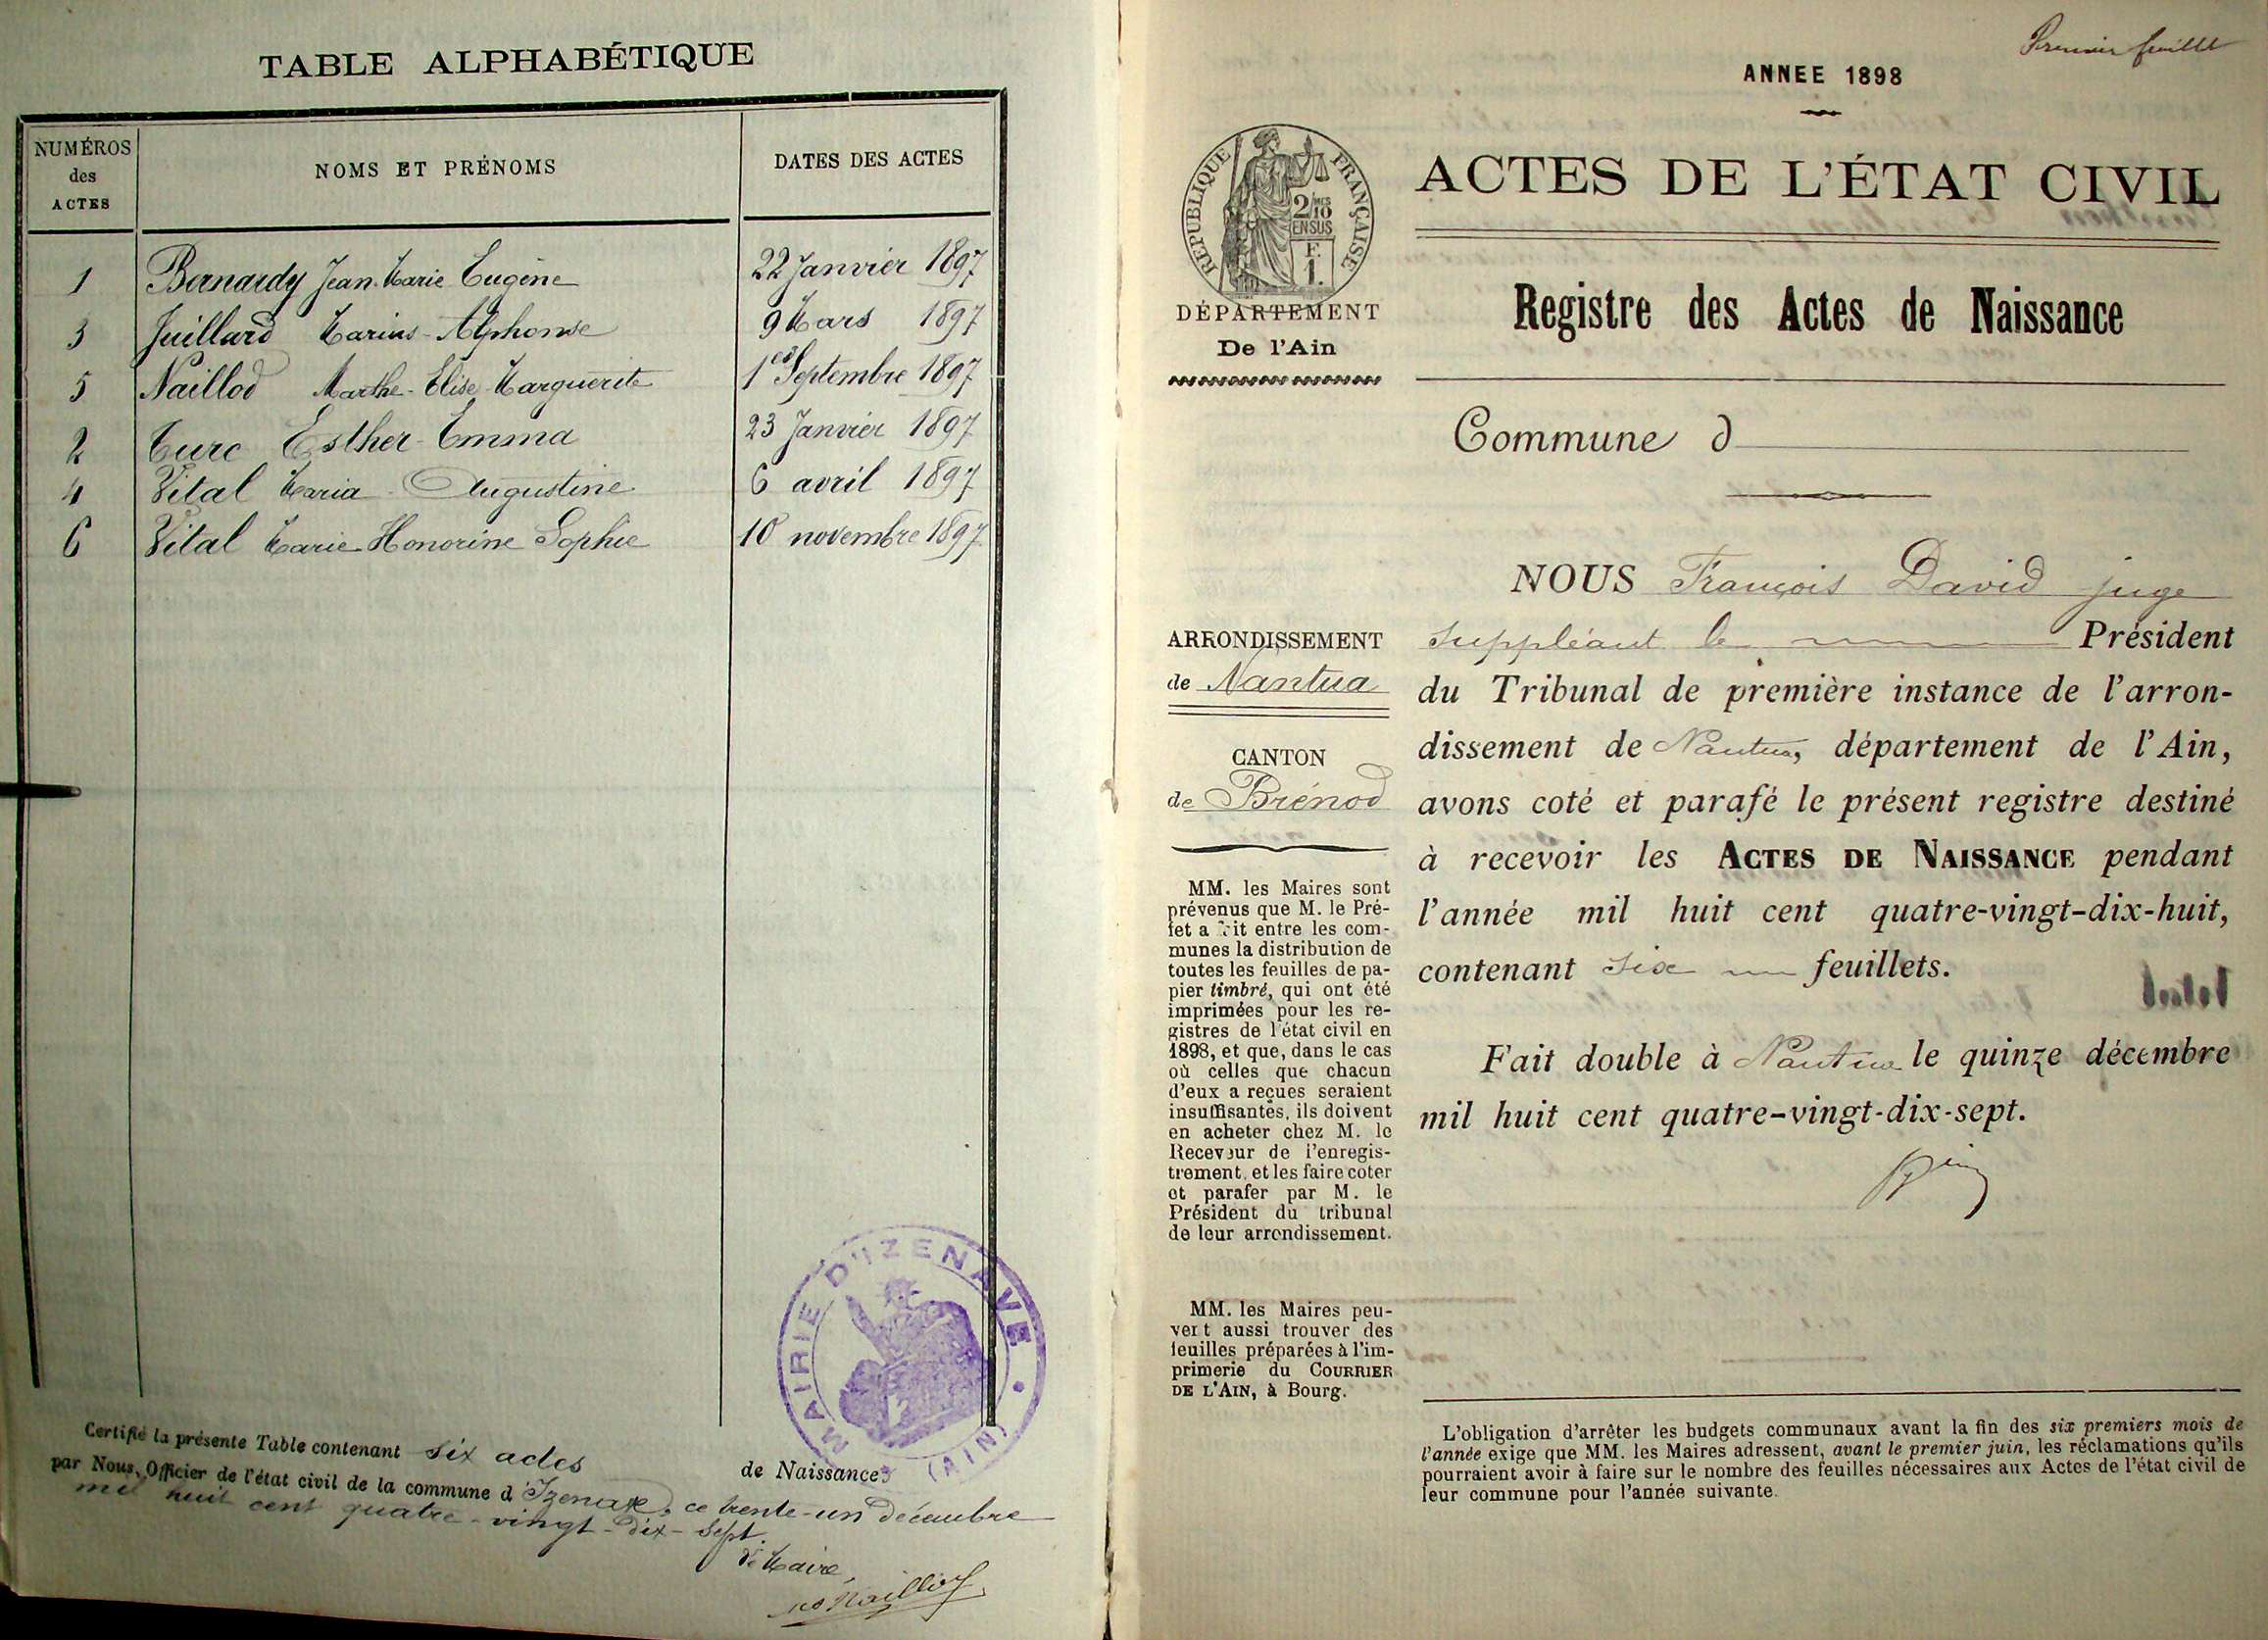 TABLE ALPHABÉTIQUE
NUMÉROS des ACTES
NOMS ET PRÉNOMS
DATES DES ACTES
1 Bernardy Jean Marie Eugène 22 Janvier 1897
3 Juillard Marius-Alphonse 9 Mars 1897
5 Naillod Marthe-Elise-Marguerite 1er Septembre 1897
2 Turc Esther-Emma 23 Janvier 1897
4 Vital Maria Augustine 6 avril 1897
6 Vital Marie-Honorine Sophie 10 novembre 1897
MAIRIE D'IZENAVE (AIN)
Certifié la présente Table contenant six actes de Naissances
par Nous, Officier de l'état civil de la commune d'Izenave, ce trente-un décembre
mil huit cent quatre-vingt-dix-sept.
Le Maire,
Naillod
Premier feuillet
ANNEE 1898
RÉPUBLIQUE FRANÇAISE
2/10 EN SUS
F. 1.
DÉPARTEMENT
De l'Ain
ACTES DE L'ÉTAT CIVIL
Registre des Actes de Naissance
Commune d
ARRONDISSEMENT
de Nantua
CANTON
de Brénod
MM. les Maires sont
prévenus que M. le Pré-
fet a fait entre les com-
munes la distribution de
toutes les feuilles de pa-
pier timbré, qui ont été
imprimées pour les re-
gistres de l'état civil en
1898, et que, dans le cas
où celles que chacun
d'eux a reçues seraient
insuffisantes, ils doivent
en acheter chez M. le
Receveur de l'enregis-
trement, et les faire coter
et parafer par M. le
Président du tribunal
de leur arrondissement.
MM. les Maires peu-
vent aussi trouver des
feuilles préparées à l'im-
primerie du COURRIER
DE L'AIN, à Bourg.
NOUS François David juge
suppléant le Président
du Tribunal de première instance de l'arron-
dissement de Nantua, département de l'Ain,
avons coté et parafé le présent registre destiné
à recevoir les ACTES DE NAISSANCE pendant
l'année mil huit cent quatre-vingt-dix-huit,
contenant six feuillets.
Fait double à Nantua le quinze décembre
mil huit cent quatre-vingt-dix-sept.
L'obligation d'arrêter les budgets communaux avant la fin des six premiers mois de
l'année exige que MM. les Maires adressent, avant le premier juin, les réclamations qu'ils
pourraient avoir à faire sur le nombre des feuilles nécessaires aux Actes de l'état civil de
leur commune pour l'année suivante.